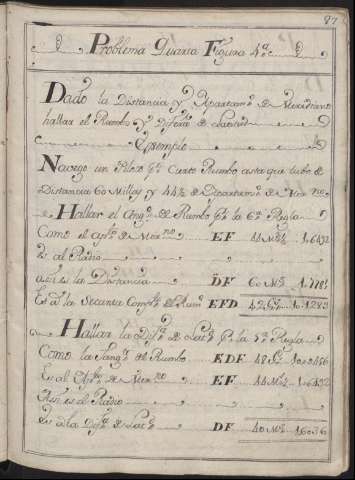 87
Problema Quarta Figura 4ª
Dado la Distancia y Apartamº de Meridiano
hallar el Rumbo y Diferª de Latitud
Exemplo
Navego un Piloto Pr Cierto Rumbo asta que tubo de
Distancia 60 Millas y 44½ de Apartamº de Merno
Hallar el Angº de Rumbo Pr la 6ª Regla
Como el Apº de Merno EF 44 Ms½ 1.6492
Es al Radio
asi es la Distancia DF 60 Ms 1.7781
Es a la Secante Compº del Rumº EFD 42 Gs 10.1283
Hallar la Difª de Latd Pr la 5ª Regla
Como la Tangª de Rumbo EDF 48 Gs
Es al Apº de Merno EF 44 Ms½ 1.6492
Asi es al Radio
Es a la Difª de Latd DF 40 Ms